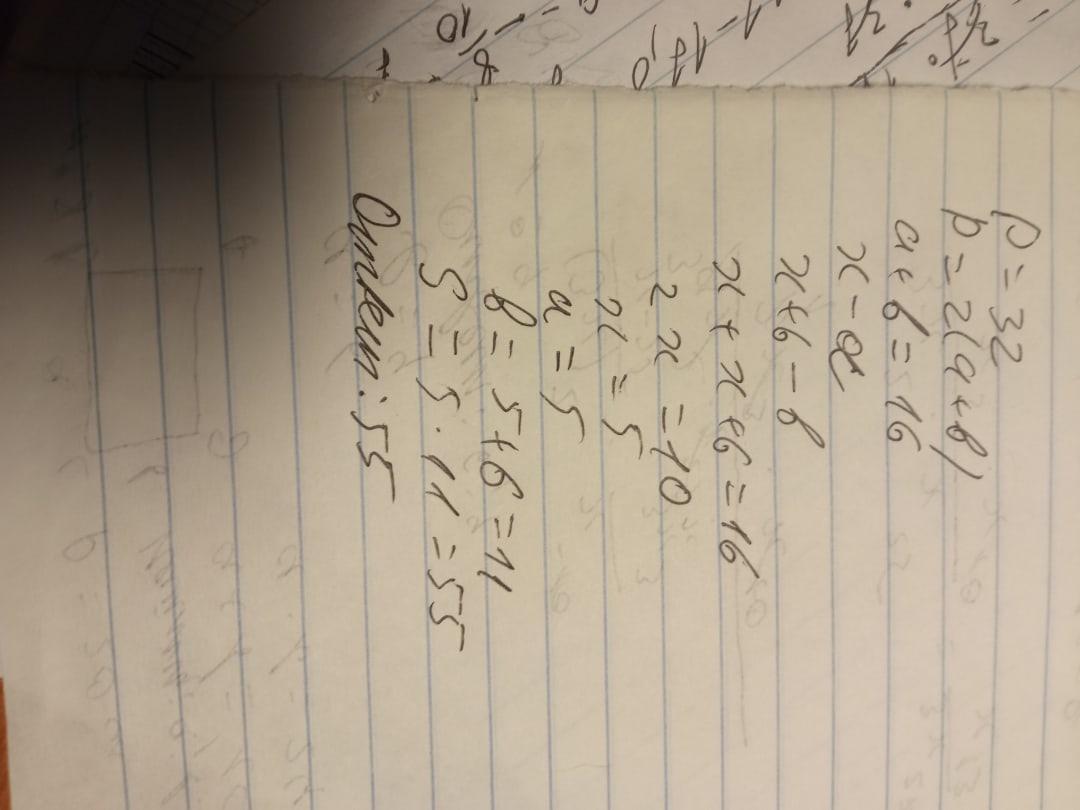 p = 32
p = 2(a+b)
a+b = 16
x - a
x+6 - b
x + x+6 = 16
2x = 10
x = 5
a = 5
b = 5+6 = 11
S = 5 · 11 = 55
Ответ: 55